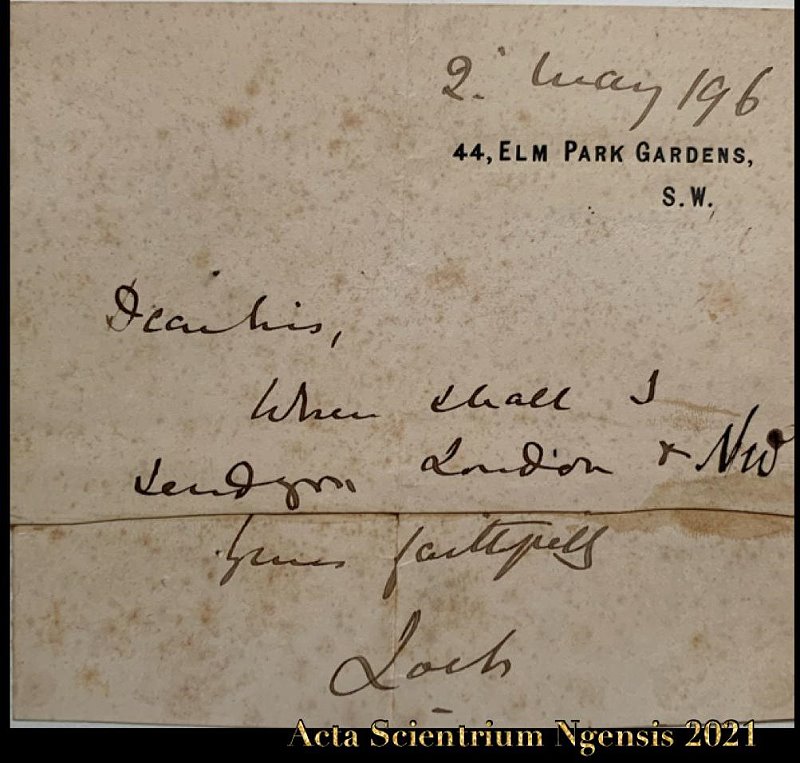 2. May 196
44, ELM PARK GARDENS,
S.W.
Dear Sirs,
When shall I
send you London & NW
Yours faithfully
Loch
Acta Scientrium Ngensis 2021